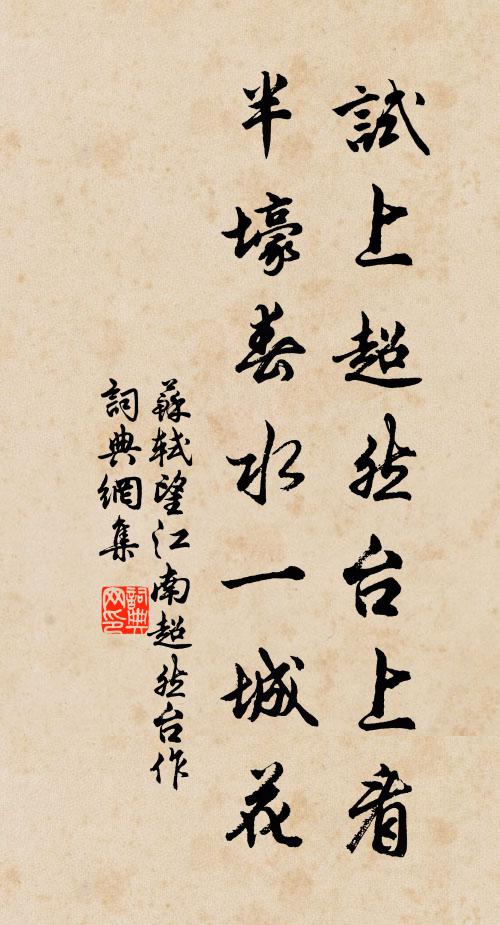 試上超然台上看
半壕春水一城花
蘇軾望江南超然台作
詞典網集
詞典
网印